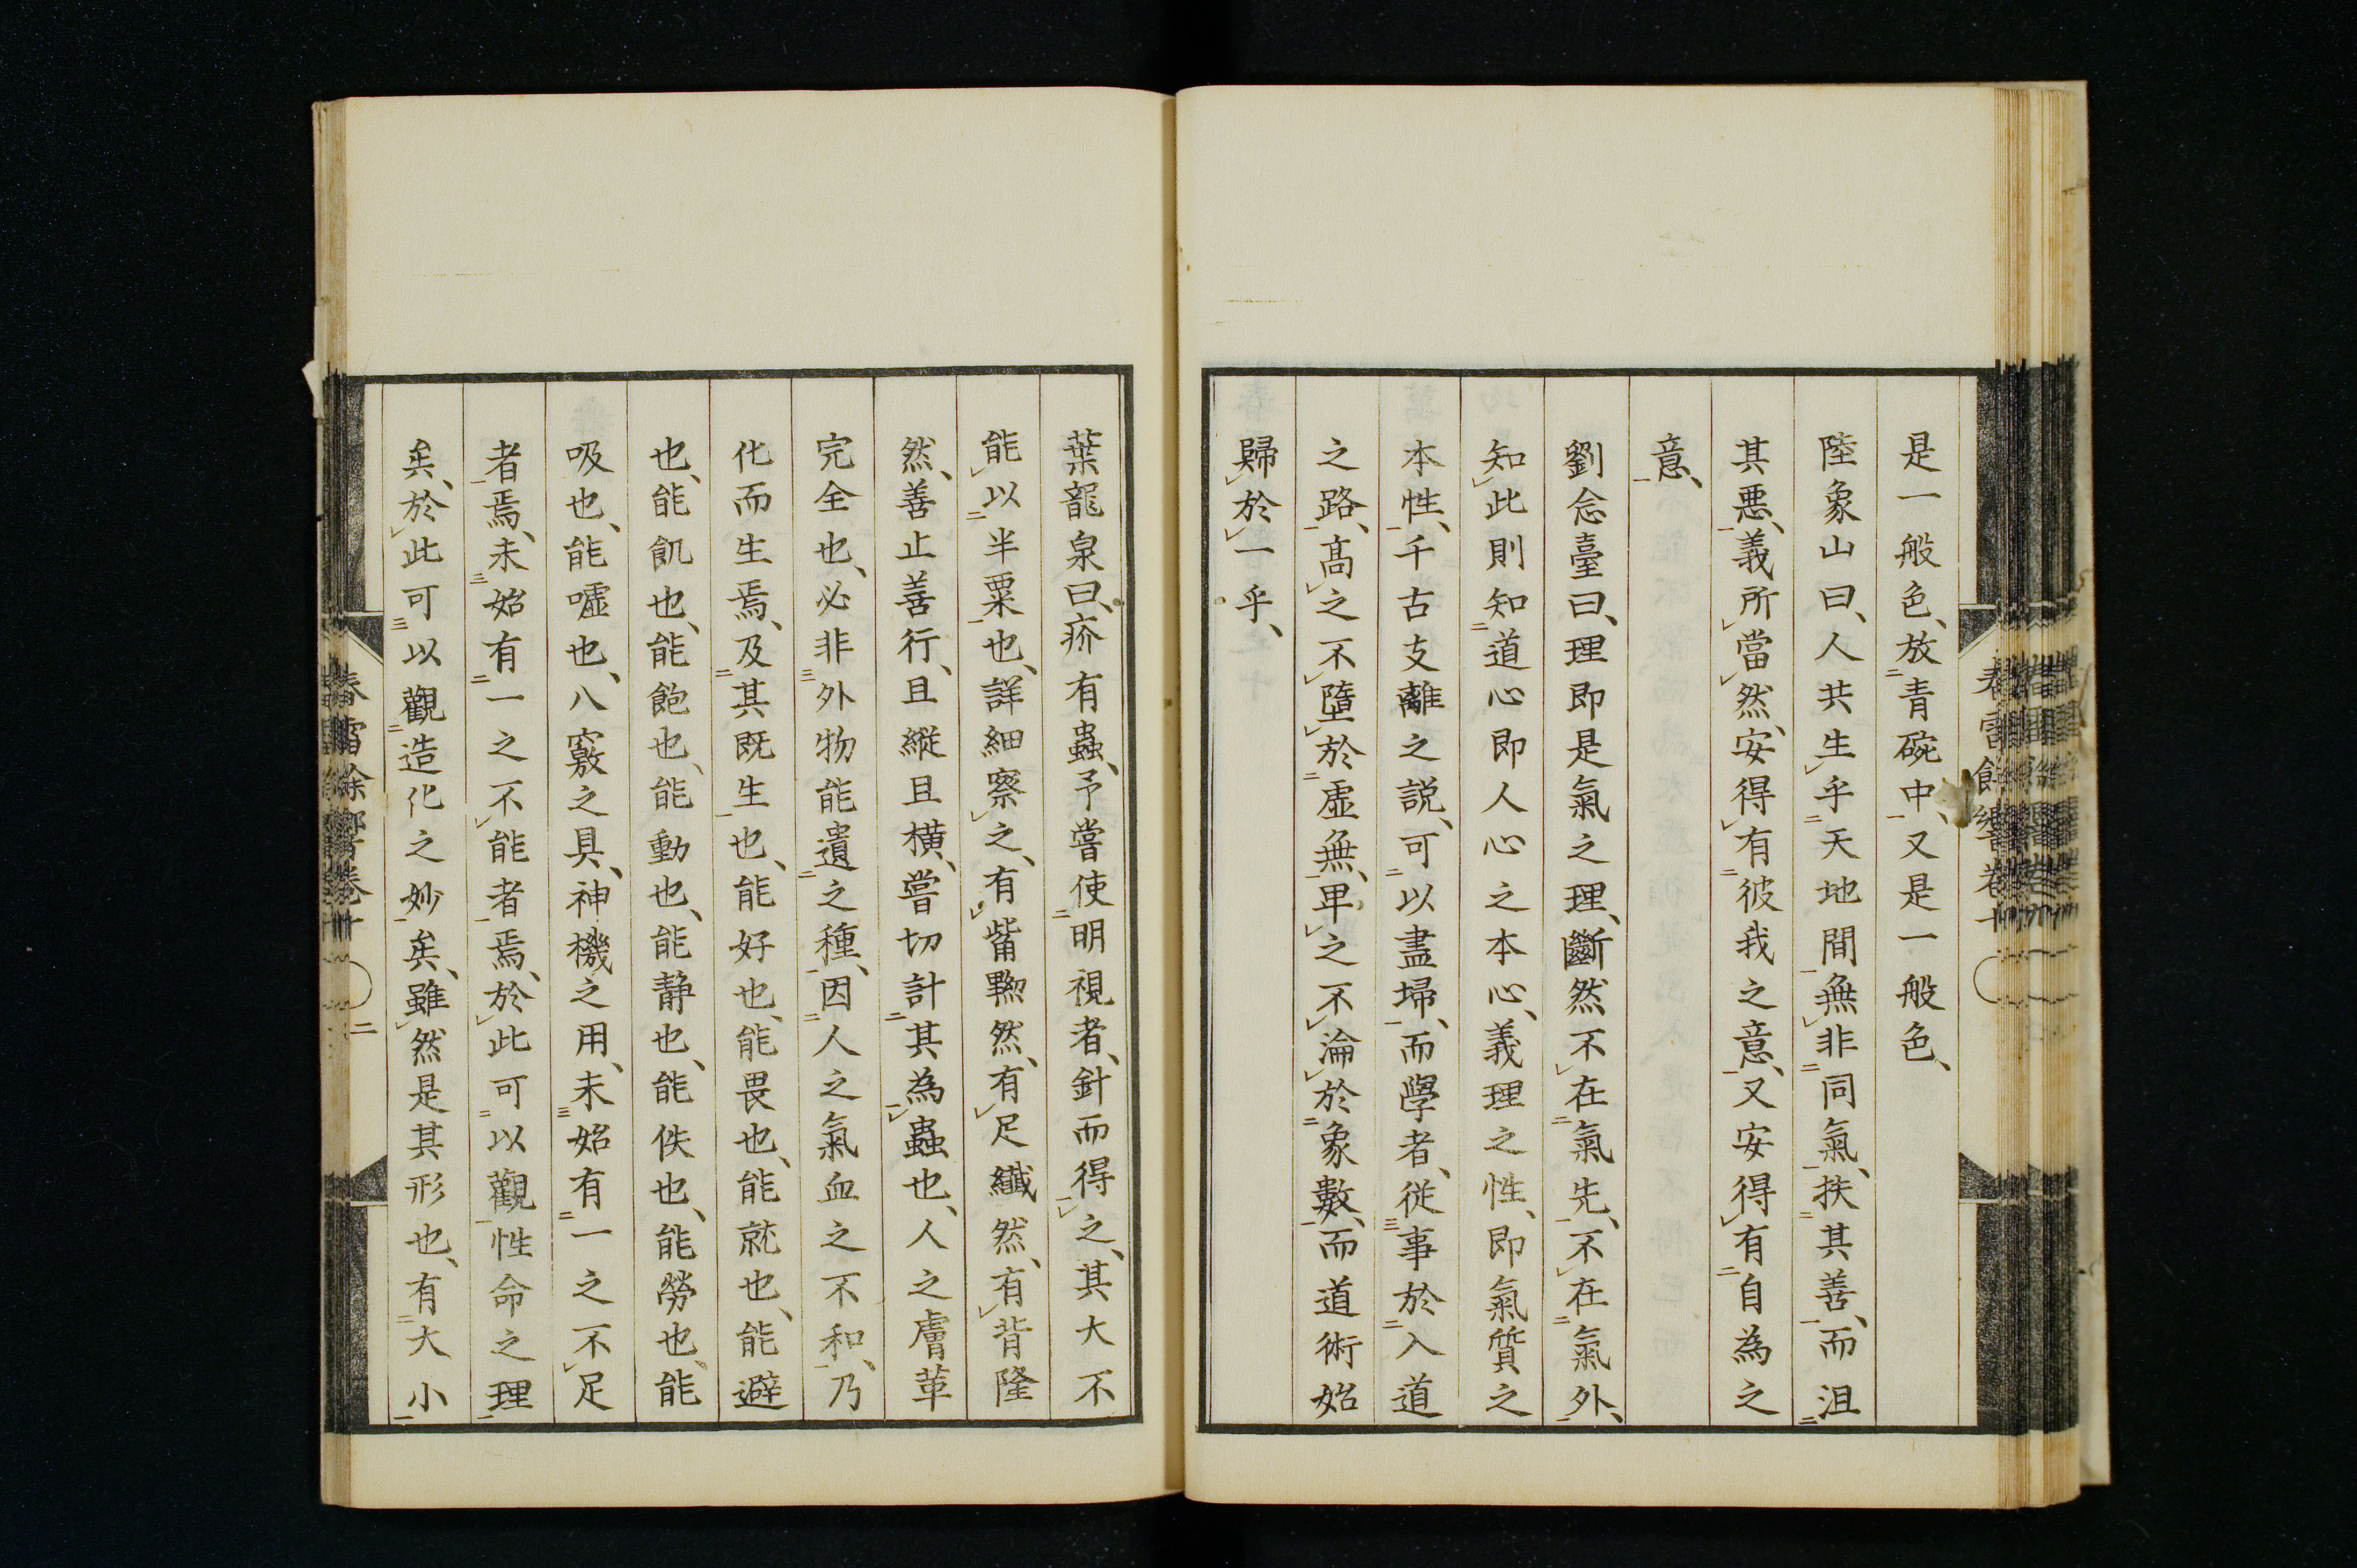 是一般色、放青碗中、又是一般色、
陸象山曰、人共生乎天地間無非同氣、扶其善、而沮
其悪、義所當然、安得有彼我之意、又安得有自為之
意、
劉念臺曰、理即是氣之理、斷然不在氣先、不在氣外、
知此則知道心即人心之本心、義理之性、即氣質之
本性、千古支離之説、可以盡埽、而學者、從事於入道
之路、高之不墮於虚無、卑之不淪於象數、而道術始
歸於一乎、
葉龍泉曰、疥有蟲、予嘗使明視者、針而得之、其大不
能以半粟也、詳細察之、有觜黟然、有足纖然、有背隆
然、善止善行、且縱且橫、嘗切計其為蟲也、人之膚革
完全也、必非外物能遺之種、因人之氣血之不和、乃
化而生焉、及其既生也、能好也、能畏也、能就也、能避
也、能飢也、能飽也、能動也、能靜也、能佚也、能勞也、能
吸也、能噓也、八竅之具、神機之用、未始有一之不足
者焉、未始有一之不能者焉、於此可以觀性命之理
矣、於此可以觀造化之妙矣、雖然是其形也、有大小
春雷餘響卷十
二